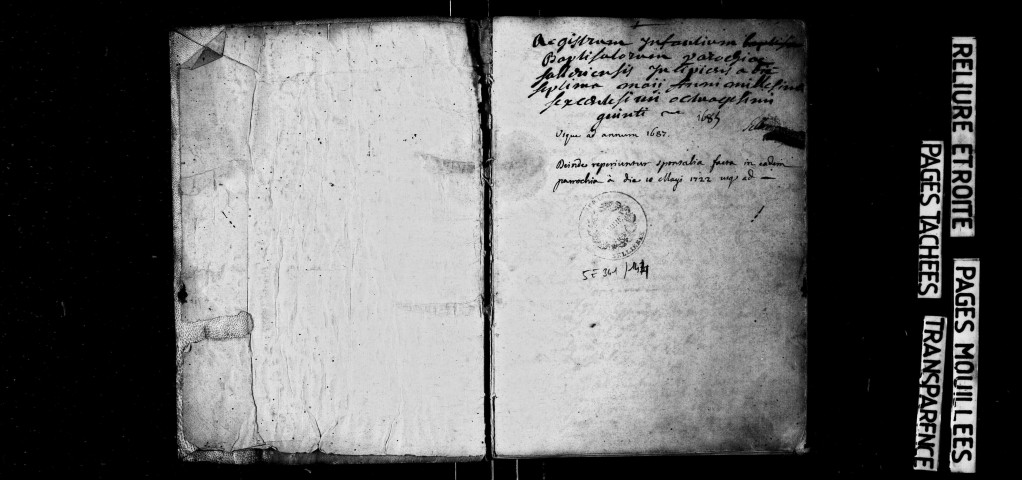 Registrum Infantium
Baptisatorum parochiae
Incipiens a die
septima maii Anni millesimi
sexcentesimi octuagesimi
quinti 1685
Usque ad annum 1687.
Deinde reperiuntur sponsalia facta in eadem
parrochia à die 10 Maji 1722 usq ad —
SELLIERES
5E 361 /
RELIURE ETROITE
PAGES TACHEES
PAGES MOUILLEES
TRANSPARENCE